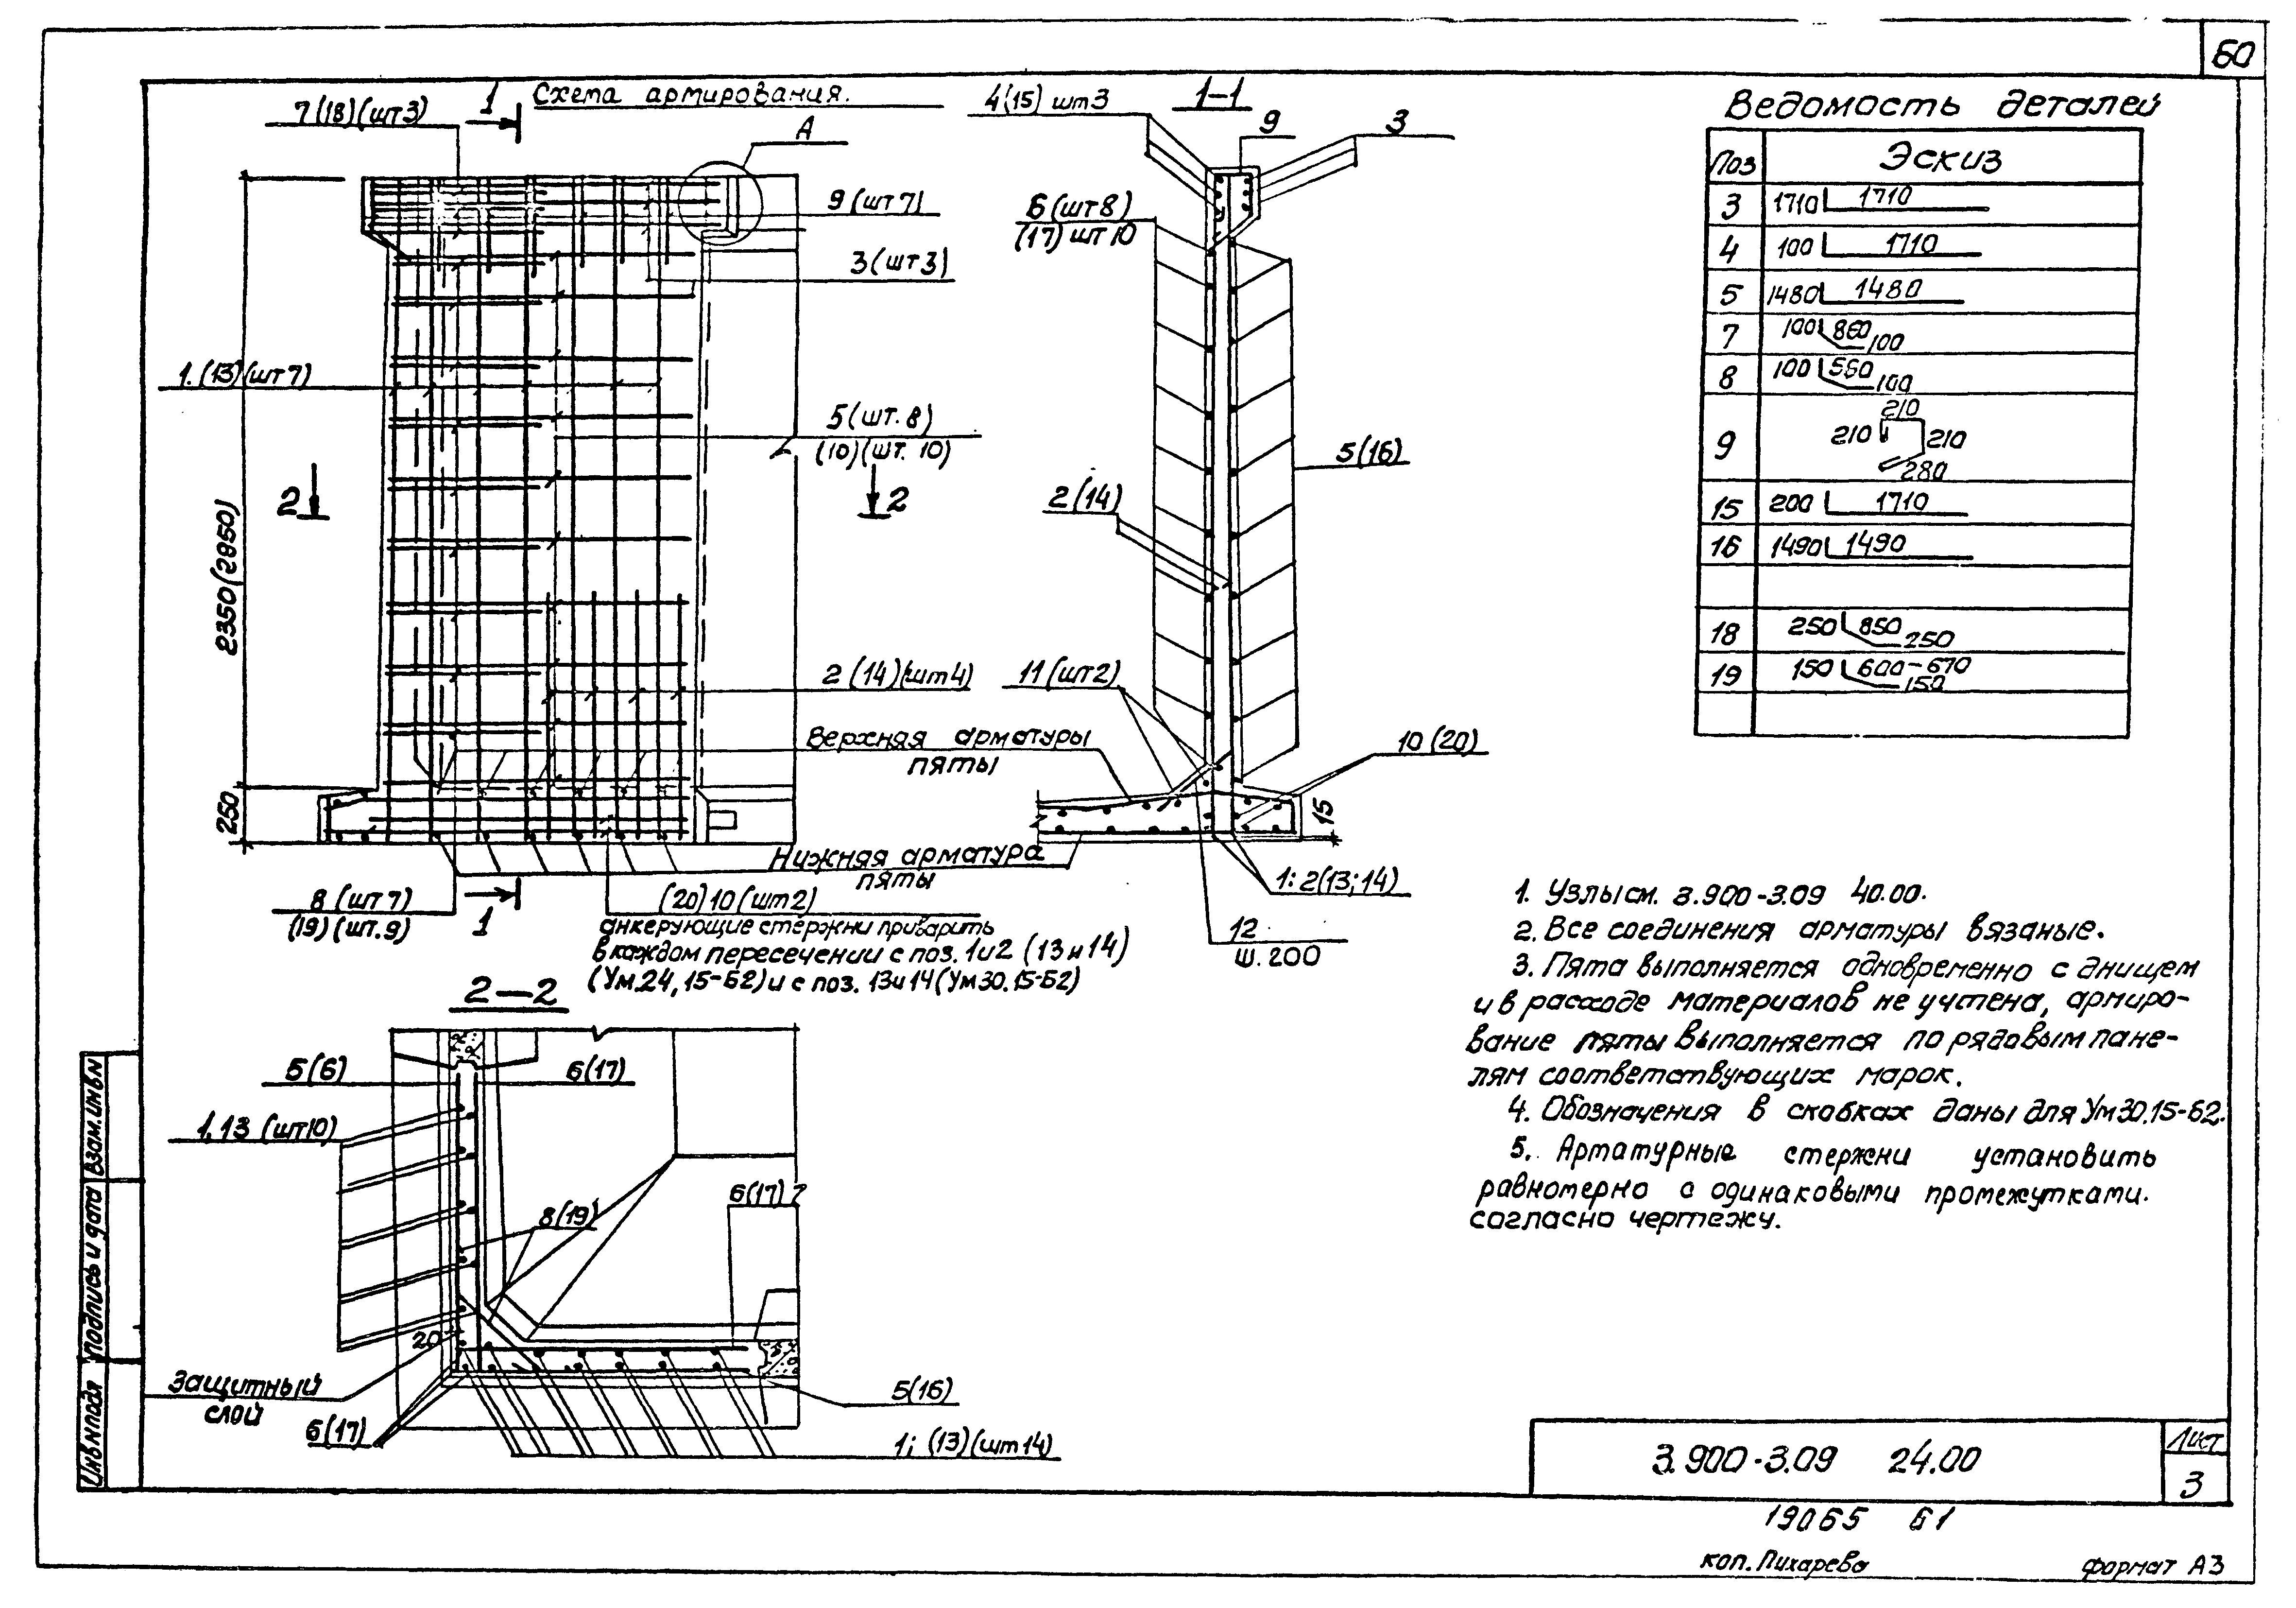 60
Схема армирования.
7(18)(шт3)
1
А
9(шт7)
3(шт3)
1.(13)(шт7)
5(шт.8)
(10)(шт.10)
2
2
2350(2850)
250
2(14)(шт4)
Верхняя арматуры
пяты
Нижняя арматура
пяты
8(шт7)
(19)(шт.9)
1
(20)10(шт2)
анкерующие стержни приварить
в каждом пересечении с поз. 1и2 (13и14)
(Ум.24,15-Б2)и с поз. 13и14(Ум30.15-Б2)
1-1
4(15) шт3
9
3
6(шт8)
(17) шт10
5(16)
2(14)
11(шт2)
10(20)
15
1:2(13;14)
12
Ш.200
2-2
5(6)
6(17)
1,13 (шт10)
8(19)
6(17)
20
Защитный
слой
6(17)
5(16)
1; (13)(шт14)
Ведомость деталей
Поз Эскиз
3 1710 1710
4 100 1710
5 1480 1480
7 100 860 100
8 100 560 100
9 210 210 210 280
15 200 1710
16 1490 1490
18 250 850 250
19 150 600-670 150
1. Узлы см. 3.900-3.09 40.00.
2. Все соединения арматуры вязаные.
3. Пята выполняется одновременно с днищем
и в расходе материалов не учтена, армиро-
вание пяты выполняется по рядовым пане-
лям соответствующих марок.
4. Обозначения в скобках даны для Ум30.15-Б2.
5. Арматурные стержни установить
равномерно с одинаковыми промежутками.
согласно чертежу.
Инв№подл Подпись и дата Взам.инв№
3.900-3.09 24.00
Лист
3
19065 61
коп. Пихарева формат А3